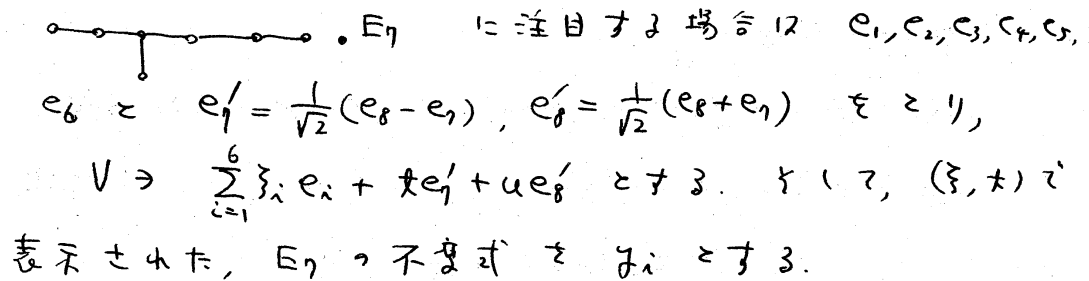 . E₇ に注目する場合は e₁, e₂, e₃, e₄, e₅,
e₆ と e₇′ = 1/√2 (e₈ - e₇), e₈′ = 1/√2 (e₈ + e₇) をとり,
V ∋ ∑_{i=1}^{6} ξᵢ eᵢ + t e₇′ + u e₈′ とする. そして, (ξ, t) で
表示された, E₇ の不変式を yᵢ とする.